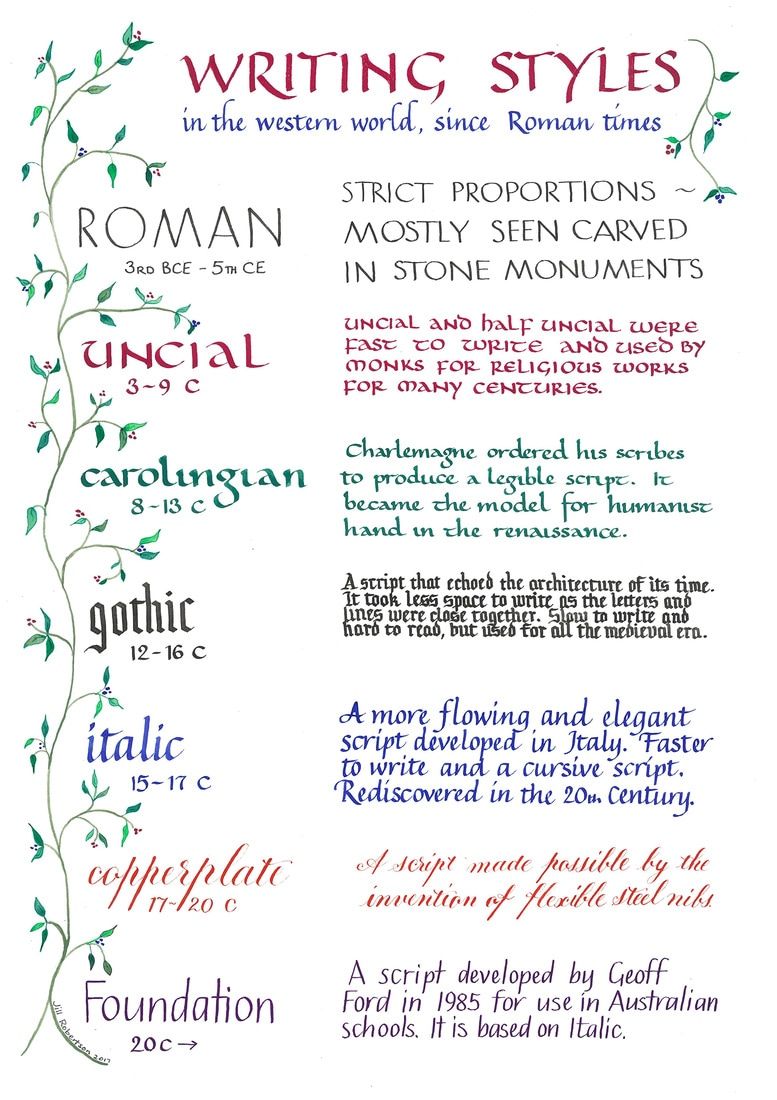 WRITING STYLES
in the western world, since Roman times
ROMAN
3RD BCE - 5TH CE
STRICT PROPORTIONS ~
MOSTLY SEEN CARVED
IN STONE MONUMENTS
UNCIAL
3-9 C
UNCIAL AND HALF UNCIAL WERE
FAST TO WRITE AND USED BY
MONKS FOR RELIGIOUS WORKS
FOR MANY CENTURIES.
carolingian
8-13 C
Charlemagne ordered his scribes
to produce a legible script. It
became the model for humanist
hand in the renaissance.
gothic
12-16 C
A script that echoed the architecture of its time.
It took less space to write as the letters and
lines were close together. Slow to write and
hard to read, but used for all the medieval era.
italic
15-17 C
A more flowing and elegant
script developed in Italy. Faster
to write and a cursive script.
Rediscovered in the 20th Century.
copperplate
17-20 C
A script made possible by the
invention of flexible steel nibs.
Foundation
20C →
A script developed by Geoff
Ford in 1985 for use in Australian
schools. It is based on Italic.
Jill Robertson 2017